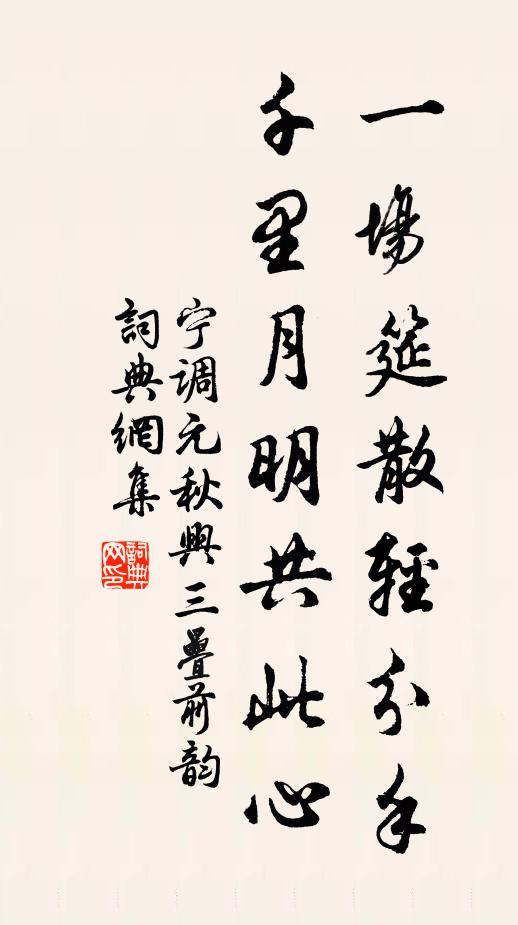 一場筵散輕分手
千里月明共此心
宁调元秋興三疊前韵
詞典網集
詞典网印